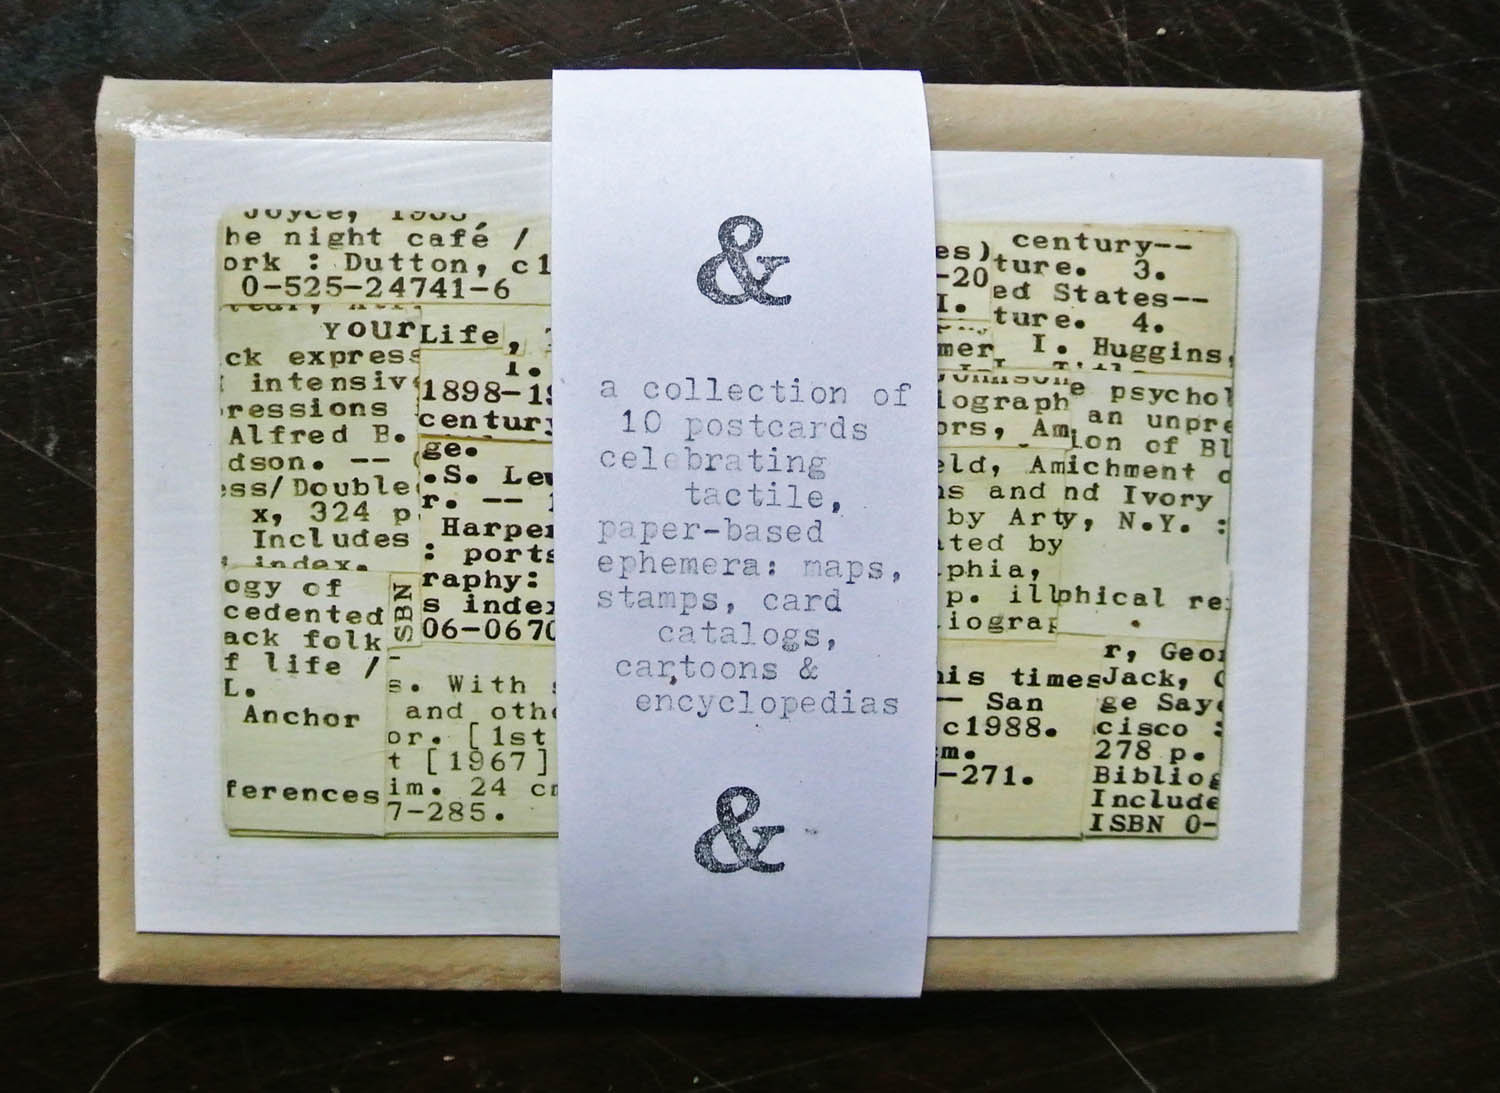 Joyce,
he night café /
ork : Dutton, c1
0-525-24741-6
your
ck express
intensiv
ressions
Alfred B.
dson. --
ess/Double
x, 324 p
Includes
index.
ogy of
cedented
ack folk
f life /
L.
Anchor
ferences
Life,
1.
1898-19
century
ge.
.S. Lew
r. --
Harper
: ports
raphy:
s index
06-0670
SBN
s. With
and othe
or. [1st
t [1967]
im. 24 cm
7-285.
&
a collection of
10 postcards
celebrating
tactile,
paper-based
ephemera: maps,
stamps, card
catalogs,
cartoons &
encyclopedias
&
es)
-20
I.
mer
century--
ture. 3.
ed States--
ture. 4.
I. Huggins,
iograph
ors, Am
eld, Am
ns and
by Art
ated by
phia,
p. ill
iograp
e psychol
an unpre
ion of Bl
ichment o
nd Ivory
y, N.Y. :
phical re
his times
-- San
c1988.
cm.
-271.
r, Geor
Jack,
ge Saye
cisco :
278 p.
Bibliog
Include
ISBN 0-